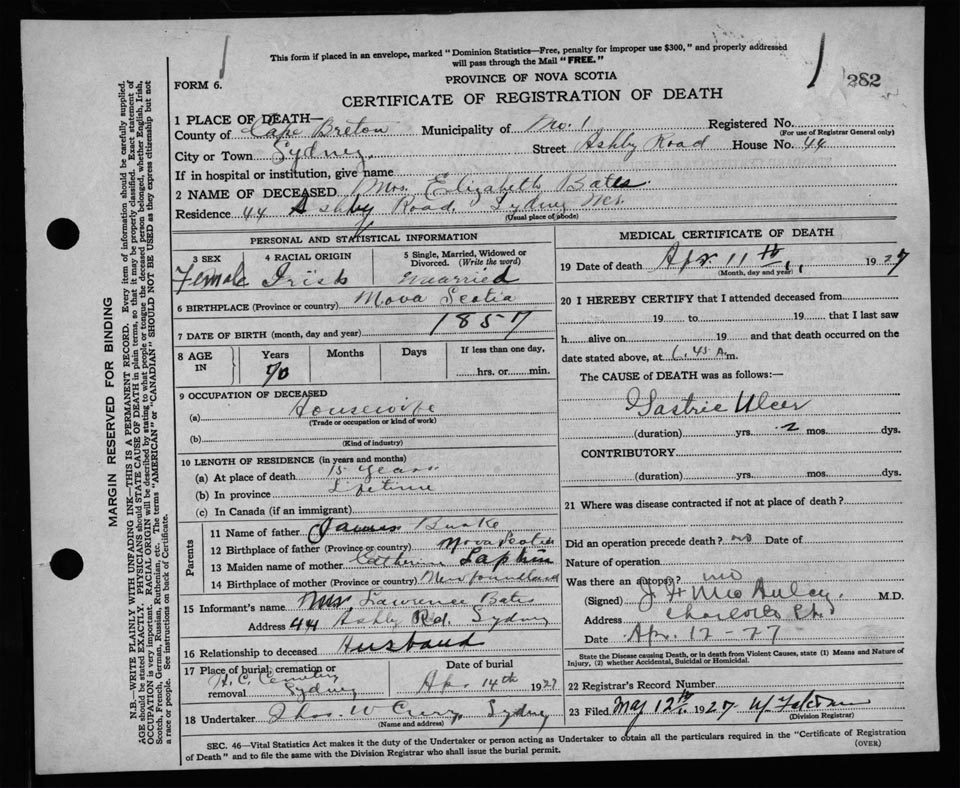 This form if placed in an envelope, marked "Dominion Statistics—Free, penalty for improper use $300," and properly addressed
will pass through the Mail "FREE."
FORM 6.
282
PROVINCE OF NOVA SCOTIA
CERTIFICATE OF REGISTRATION OF DEATH
1 PLACE OF DEATH—
County of Cape Breton Municipality of No. 1 Registered No.
(For use of Registrar General only)
City or Town Sydney Street Ashby Road House No. 44
If in hospital or institution, give name
2 NAME OF DECEASED Mrs. Elizabeth Bates
Residence 44 Ashby Road, Sydney
(Usual place of abode)
PERSONAL AND STATISTICAL INFORMATION
3 SEX 4 RACIAL ORIGIN 5 Single, Married, Widowed or
Divorced. (Write the word)
Female Irish Married
6 BIRTHPLACE (Province or country) Nova Scotia
7 DATE OF BIRTH (month, day and year) 1857
8 AGE IN Years Months Days If less than one day,
70 hrs. or min.
9 OCCUPATION OF DECEASED
(a) Housewife
(Trade or occupation or kind of work)
(b)
(Kind of industry)
10 LENGTH OF RESIDENCE (in years and months)
(a) At place of death 15 years
(b) In province Lifetime
(c) In Canada (if an immigrant)
Parents
11 Name of father James Burke
12 Birthplace of father (Province or country) Nova Scotia
13 Maiden name of mother Catherine
14 Birthplace of mother (Province or country) Newfoundland
15 Informant's name Lawrence Bates
Address 44 Ashby Rd. Sydney
16 Relationship to deceased Husband
17 Place of burial, cremation or Date of burial
removal Cemetery Sydney Apr. 14th 1927
18 Undertaker Thos. W Curry, Sydney
(Name and address)
MEDICAL CERTIFICATE OF DEATH
19 Date of death Apr. 11th 1927
(Month, day and year)
20 I HEREBY CERTIFY that I attended deceased from
19 to 19 that I last saw
h alive on 19 and that death occurred on the
date stated above, at 6.45 A.m.
The CAUSE of DEATH was as follows:—
Gastric Ulcer
(duration) yrs. 2 mos. dys.
CONTRIBUTORY
(duration) yrs. mos. dys.
21 Where was disease contracted if not at place of death?
Did an operation precede death? no Date of
Nature of operation
Was there an autopsy? no
(Signed) M.D.
Address Charlotte St.
Date Apr. 12-27
State the Disease causing Death, or in death from Violent Causes, state (1) Means and Nature of
Injury, (2) whether Accidental, Suicidal or Homicidal.
22 Registrar's Record Number
23 Filed May 12th 1927
(Division Registrar)
SEC. 46—Vital Statistics Act makes it the duty of the Undertaker or Person acting as Undertaker to obtain all the particulars required in the "Certificate of Registration
of Death" and to file the same with the Division Registrar who shall issue the burial permit.
(OVER)
MARGIN RESERVED FOR BINDING
N.B.—WRITE PLAINLY WITH UNFADING INK—THIS IS A PERMANENT RECORD. Every item of information should be carefully supplied.
AGE should be stated EXACTLY. PHYSICIANS should STATE CAUSE OF DEATH in plain terms, so that it may be properly classified. Exact statement of
OCCUPATION is very important. RACIAL ORIGIN will be described by stating to what people or tongue the deceased person belonged, whether English, Irish,
Scotch, French, German, Russian, Ruthenian, etc. The terms "AMERICAN" or "CANADIAN" SHOULD NOT BE USED as they express citizenship but not
a race or people. See instructions on back of Certificate.